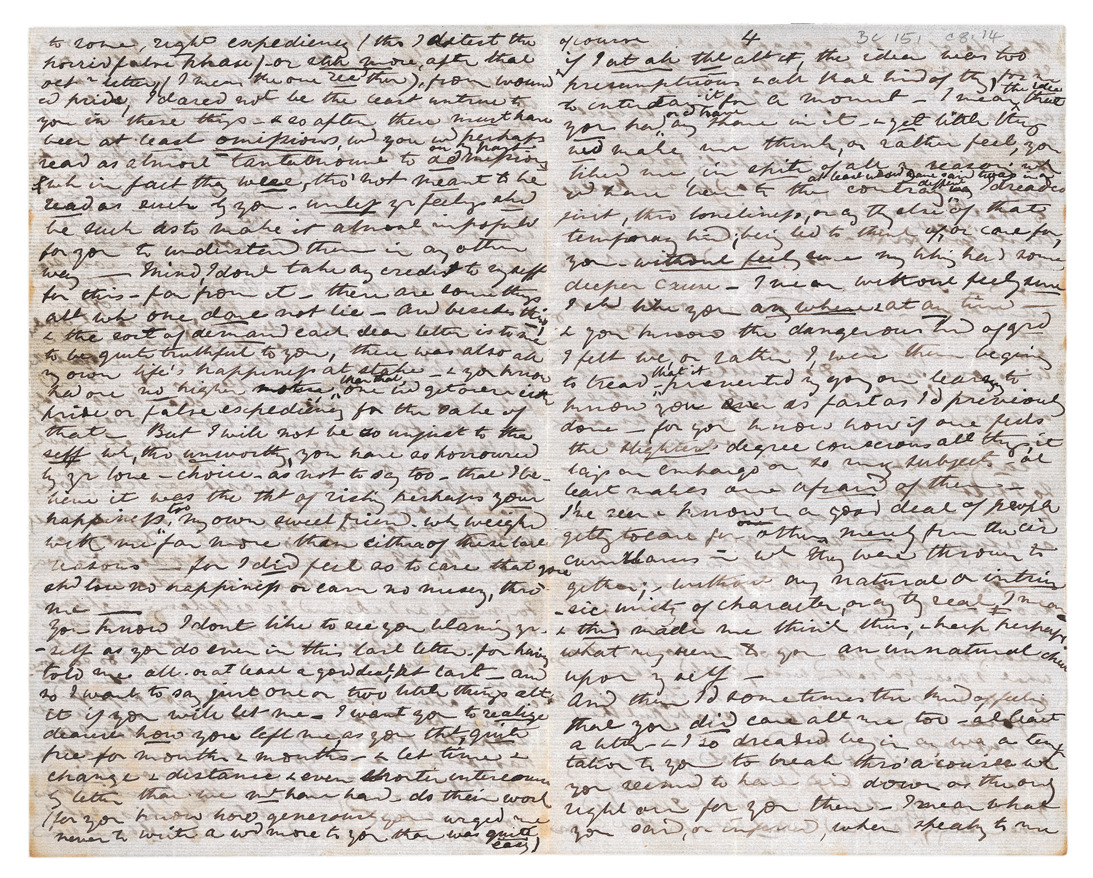 to some, right expediency (tho' I detest the
horrid false phrase) or still more, after that
letter (I mean the one ), from wound
ed pride, I dared not be the least untrue to
you in these things - & so after there must have
been at least omissions, wh you wd perhaps
on my part
read as almost tantamount to admissions
wh in fact they were, tho' not meant to be
read as such by you - unless yr feelings shd
be such as to make it almost impossible
for you to understand them in any other
way — Mind, I don't take any credit to myself
for this - far from it - there are some things
abt wh one dare not lie - And besides this
& the sort of demand each dear letter is to me
to be quite truthful to you, there was also all
my own life's happiness at stake - & you know
had one no higher motive than that one wd get over even
pride or false expediency for the sake of
that. But I will not be so unjust to the
self wh, tho' unworthy, you have so honoured
by yr love - choice - as not to say too - that I be-
lieve it was the tht of risking perhaps your
happiness too, my own sweet friend, wh weighed
with me far more than either of these last
reasons — for I did feel so to care that you
shd lose no happiness or earn no misery, thro'
me —
You know I don't like to see you blaming yr-
-self as you do even in this last letter for having
told me all or at least a good deal, at last - and
so I want to say just one or two little things abt
it if you will let me - I want you to realize
dearest how you left me as you tht quite
free for months & months - & let time &
change & distance & even shorter intercourse
by letter than we might have had, do their work
(for you know how generously you urged me
never to write a wd more to you than was quite
easy)
of course 4 BC 151 C8.14
if I at all tht abt it, the idea was too
presumptuous with that kind of thg for me
to entertain it for a moment - I mean the idea that
you had or d have any share in it & yet little thgs
wd make me think, or rather feel, you
liked me in spite of all my reasoning
at least wd have said twas
with dear to the contrary deeper I dreaded
first, thro' loneliness, or any thg else of that
temporary kind, being led to think of, or care for,
you without feeling sure my liking had some
deeper cause - I mean without feeling sure
I shd like you anywhere & at any time -
& you know the dangerous kind of grd
I felt we, or rather I were then beging
to tread - that it prevented my going on learning to
know you even as fast as I'd previously
done - for you know how if one feels
the slightest degree conscious abt thgs it
lays an embargo on so many subjects or at
least makes one afraid of them -
I've seen & known a good deal of people
getting to care for one others merely from the cir
cumstances in wh they were thrown to
gether; without any natural or intrin
-sic unity of character, or any thg real I mean
& this made me think thus, & keep perhaps
what my seem to you an unnatural check
upon myself -
And then I'd sometimes the kind of feeling
that you did care abt me too - at least
a little - & I so dreaded being in any way a temp
tation to you to break thro' a course wh
you seemed to have laid down as the only
right one for you then - I mean what
you said, or implied, when speakg to me